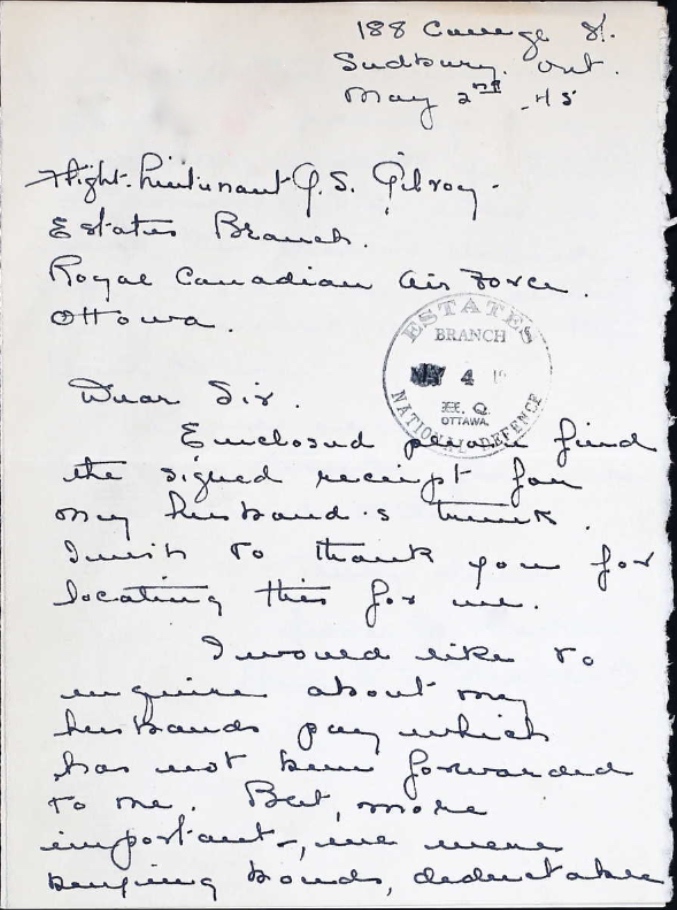 188 College St.
Sudbury. Ont.
May 2nd -45
Flight-Lieutenant G. S. Gilroy-
Estates Branch.
Royal Canadian Air Force.
Ottowa.
ESTATES
BRANCH
MAY 4
H. Q.
OTTAWA.
NATIONAL DEFENCE
Dear Sir.
Enclosed please find
the signed receipt for
my husband's trunk.
I wish to thank you for
locating this for me.
I would like to
enquire about my
husbands pay which
has not been forwarded
to me. But, more
important-, we were
buying bonds, deductable